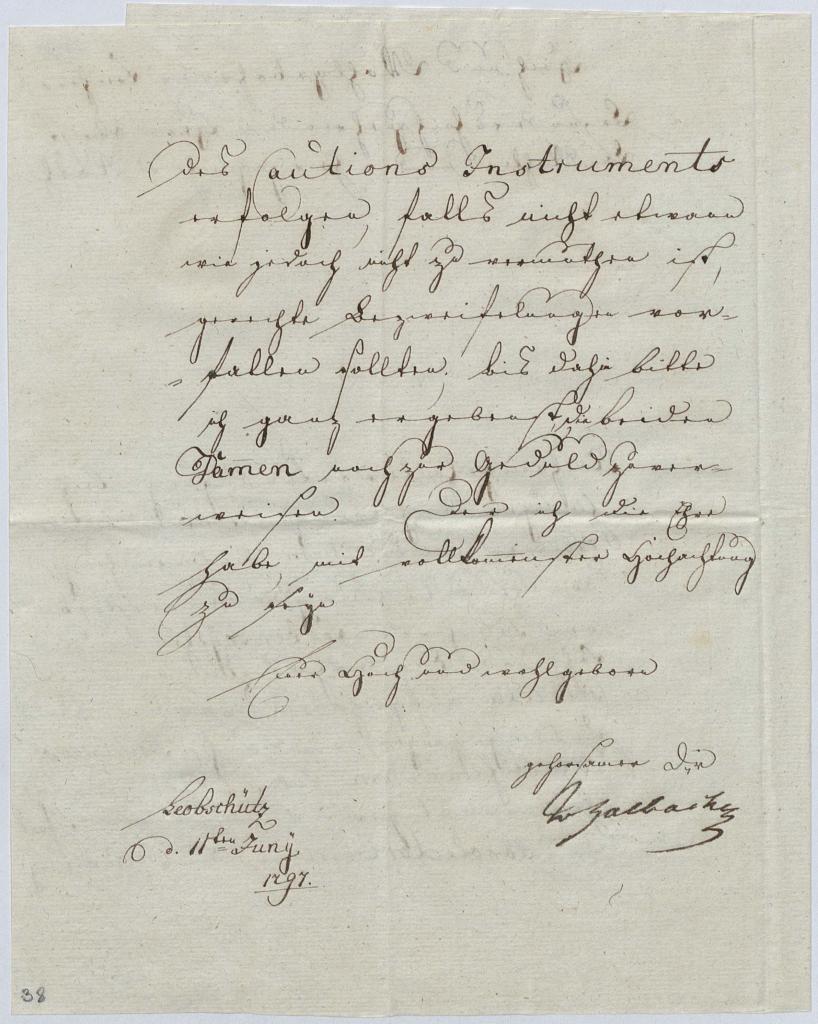 des Cautions Instruments
erfolgen, falls nicht etwann
wie jedoch nicht zu vermuthen ist,
gerechte Bezweifelungen vor-
-fallen sollten, bis dahin bitte
ich ganz ergebenst, die beiden
Damen noch zur Geduld zu ver-
weisen. Der ich die Ehre
habe, mit vollkommenster Hochachtung
zu seyn
Euer Hoch und wohlgeborn
gehorsamer Dr
Leobschütz
d. 11ten Juny
1797.
38